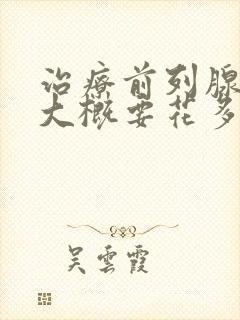 治療前列腺
大概要花多
吴雲霞